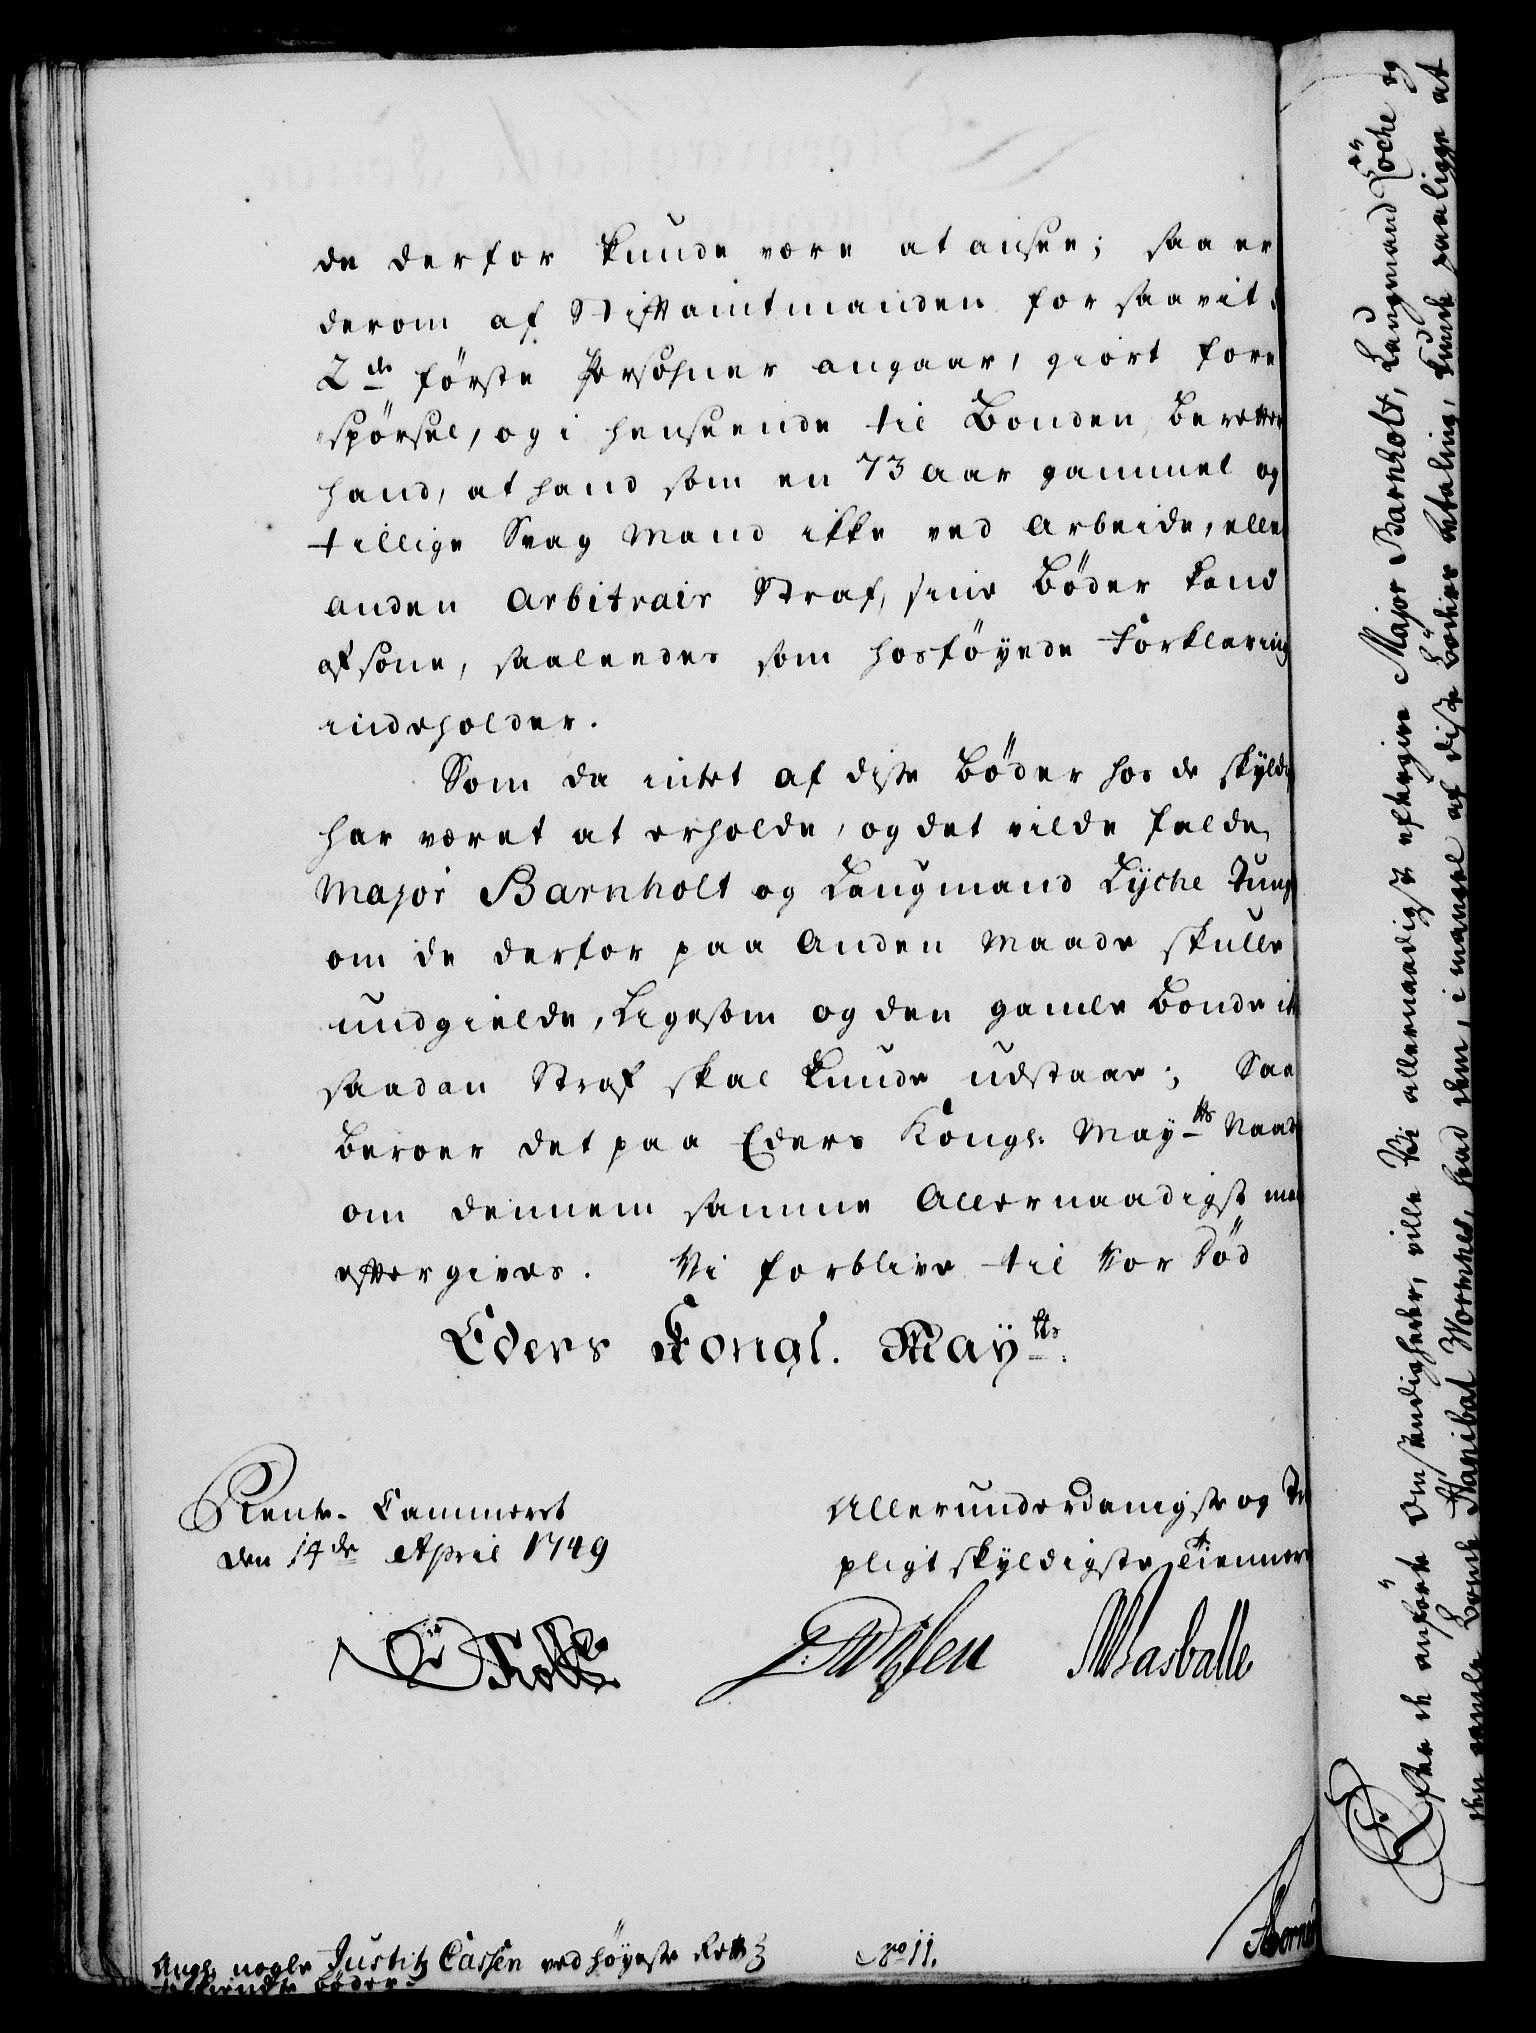 de derfor kunde være at ansee; saa er
derom af Stiftamtmanden for saavit
2de förste Persohner angaar, giort fore
spörsel, og i henseende til Bonden beretter
hand, at hand som en 73 aar gammel og
tillige Svag Mand ikke ved Arbeide, elle
anden Arbitrair Straf, sine Bøder kand
afsone, saaleedes som hosföyede Forklaring
indeholder.
Som da intet af disse Bøder hos de skyldi
har været at erholde, og det vilde falde
Major Barnholt og Laugmand Lyche tung
om de derfor paa Anden Maade skulle
undgielde, Ligesom og den gamle Bonde ik
saadan Straf skal kunde udstaae; Saa
beroer det paa Eders Kongl: Mayts Naade
om dennem samme Allernaadigst maa
eftergives. Vi forblive til Vor Död
Eders Kongl. Mayts:
Rente-Cammeret
den 14de April 1749
Allerunderdanigste og Tr
pligtskyldigste Tienner
Angl. nogle Justitz Cassen ved höyeste Rett
tilkiendte bøder
No 11.
Efter de anförte Omstændigheder, ville Vi allernaadigst eftergive Major Barnholt, Laugmand Löche og
den gamle Bonde Hanibal Wormhes, hvad dem, i mangel af disse Böders betaling, kunde paaligge at